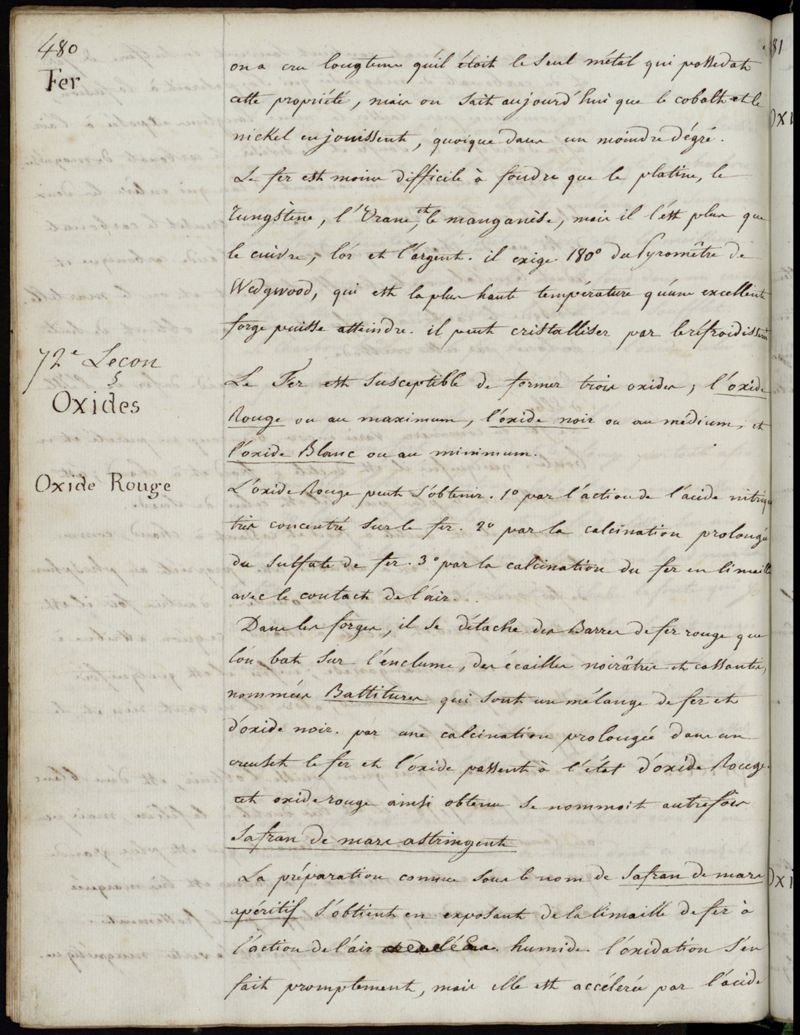 480
Fer
on a cru longtems qu'il étoit le seul métal qui possedat
cette propriété, mais on sait aujourd'hui que le cobalt et le
nickel en jouissent, quoique dans un moindre dégré.
Le fer est moins difficile à fondre que le platine, le
Tungstène, l'Urane, et le manganèse, mais il l'est plus que
le cuivre, l'or et l'argent. il exige 180° du Pyromètre de
Wedgwood, qui est la plus haute température qu'une excellente
forge puisse atteindre. il peut cristalliser par le réfroidissement
72e Leçon
Oxides
Le Fer est susceptible de former trois oxides; l'oxide
Rouge ou au maximum, l'oxide noir ou au médium, et
l'oxide Blanc ou au minimum.
Oxide Rouge
L'oxide Rouge peut s'obtenir. 1° par l'action de l'acide nitrique
très concentré sur le fer. 2° par la calcination prolongée
du sulfate de fer. 3° par la calcination du fer en limaille
avec le contact de l'air.
Dans les forges, il se détache des Barres de fer rouge que
l'on bat sur l'enclume, des écailles noirâtres et cassantes,
nommées Battitures qui sont un mélange de fer et
d'oxide noir. par une calcination prolongée dans un
creuset le fer et l'oxide passent à l'état d'oxide Rouge.
cet oxide rouge ainsi obtenu se nommoit autrefois
Safran de mars astringent
La préparation connue sous le nom de Safran de mars
apéritif s'obtient en exposant de la limaille de fer à
l'action de l'air humide. l'oxidation s'en
fait promptement, mais elle est accélérée par l'acide
81
Oxi
Oxi